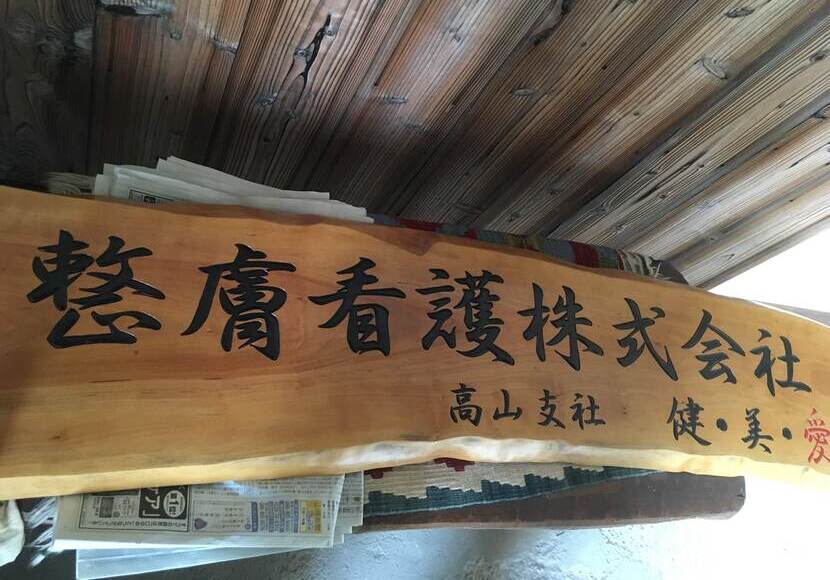 整膚看護株式会社
高山支社
健・美・愛